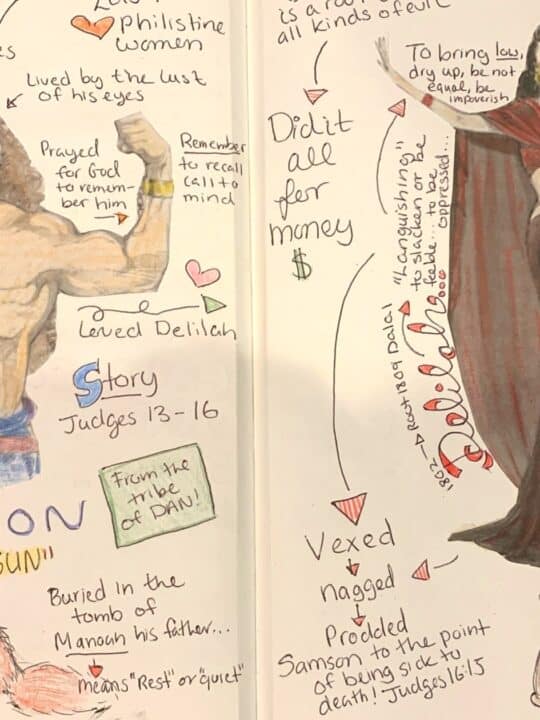 Philistine
women
Lived by the lust
of his eyes
Prayed
for God
to remem-
ber him
Remember
to recall
call to
mind
Loved Delilah
Story
Judges 13-16
From the
tribe
of DAN!
ON
SUN"
Buried in the
tomb of
Manoah his father...
means "Rest" or "quiet"
is a root
all kinds of evil
Did it
all
for
money
$
To bring low,
dry up, be not
equal, be
impoverish
"Languishing"
to slacken or be
feeble... to be
oppressed...
1802 Root 1809 Dalal
Delilah...
Vexed
nagged
Prodded
Samson to the point
of being sick to
death! Judges 16:15